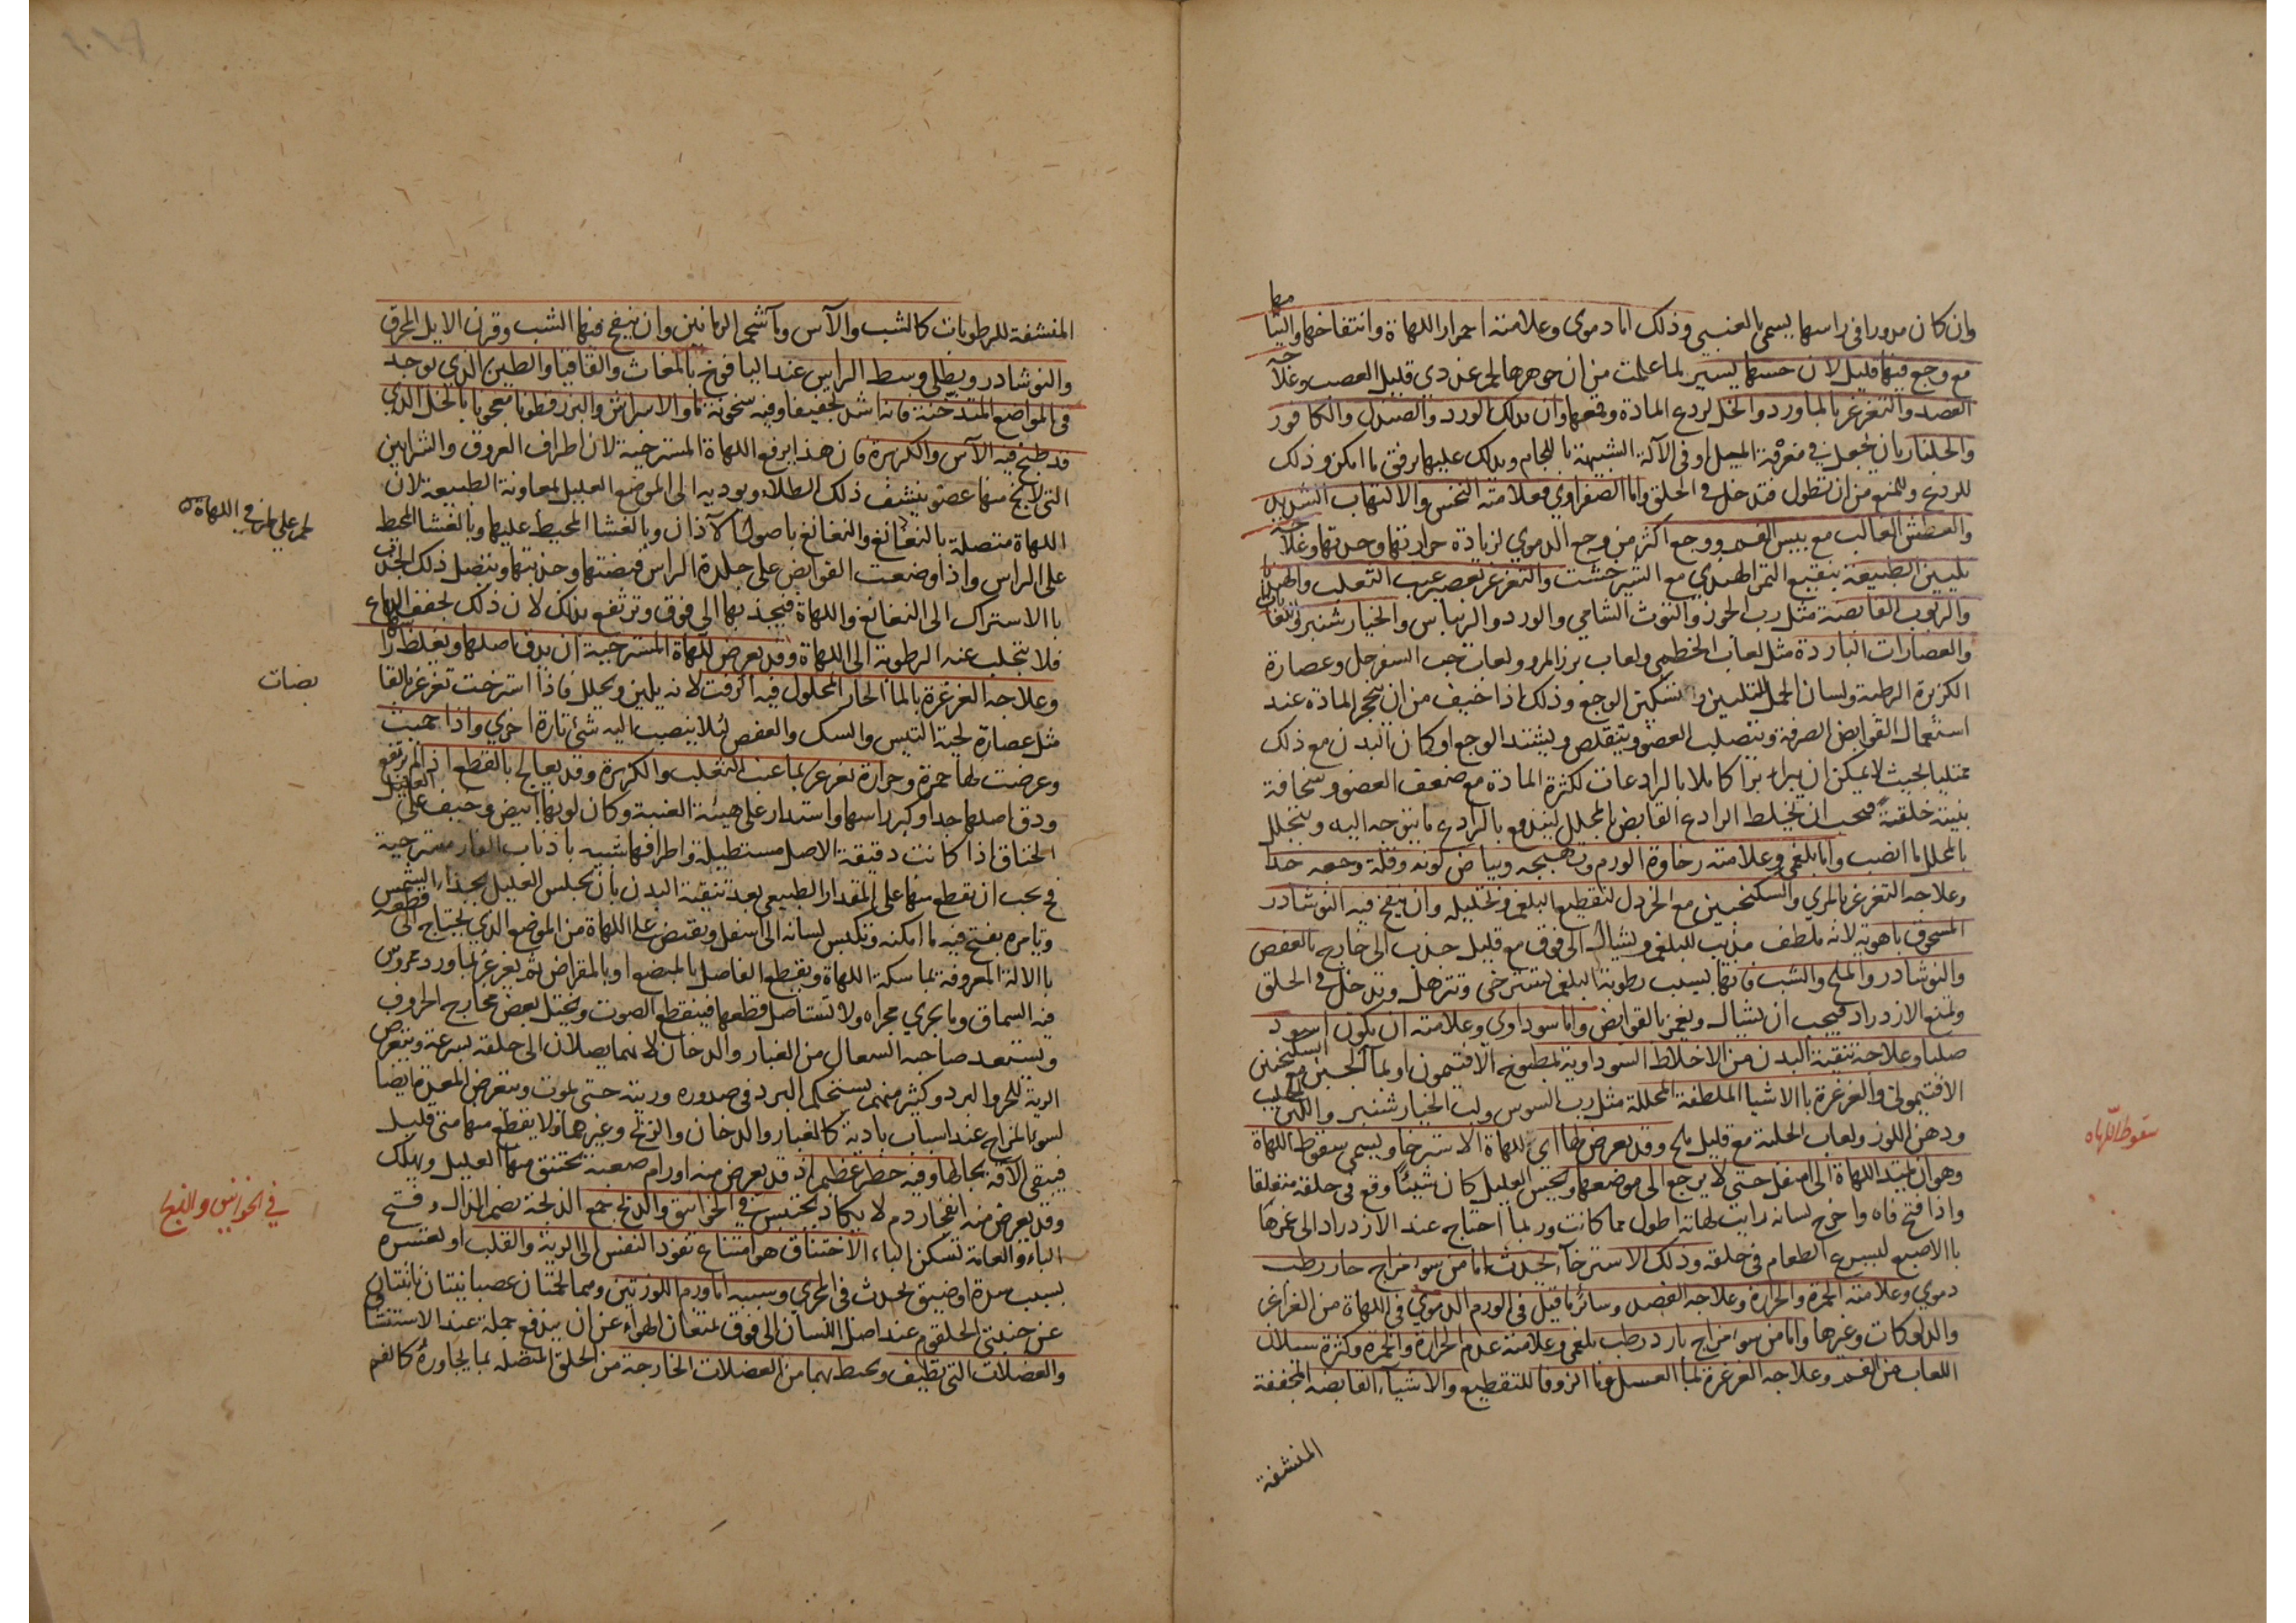 وان كان مدورا في راسها يسمي بالعنبي وذلك اما دموي وعلامته احمرار اللهاة وانتفاخها والتها
مع وجع فيها قليل لان حسها يسير لما علمت من ان جوهرها لحمي غددي قليل العصب وعلا
الفصد والتغرغر بالماورد والخل لردع المادة وقمعها وان يدلك الورد والصندل والكافور
والجلنار بان يجعل في مغرفة الميل او في الآلة الشبيهة باللجام ويدلك عليها برفق ما امكن وذلك
للردع وللمنع من ان تطول فتدخل في الحلق واما الصفراوي فعلامته النخس والالتهاب الشديد
والعطش الغالب مع يبس الفم ووجع اكثر من وجع الدموي لزيادة حرارتها وحدتها وعلا
تليين الطبيعة بنقيع التمر الهندي مع الشيرخشت والتغرغر بعصير عنب الثعلب والهندبا
والربوب القابضة مثل رب الجوز والتوت الشامي والورد والريباس والخيار شنبر
والعصارات الباردة مثل لعاب الخطمي ولعاب بزر المرو ولعاب حب السفرجل وعصارة
الكزبرة الرطبة ولسان الحمل لتليين وتسكين الوجع وذلك اذا خيف من ان يتحجر المادة عند
استعمال القوابض الصرفة ويتصلب العضو ويتقلص ويشتد الوجع او كان البدن مع ذلك
ممتليا بحيث لا يمكن ان يبراء برا كاملا بالرادعات لكثرة المادة مع ضعف العضو وسخافة
بنيته خلقة فيجب ان يخلط الرادع القابض بالمحلل ليندفع بالرادع ما يتوجه اليه ويتحلل
بالمحلل ما انصب واما بلغمي وعلامته رخاوة الورم وتهبجه وبياض لونه وقلة وجعه جدا
وعلاجه التغرغر بالمري والسكنجبين مع الخردل لتقطيع البلغم وتحليله وان ينفخ فيه النوشادر
المسحوق باهويه لانه ملطف مذيب للبلغم ويشال الى فوق مع قليل جذب الى خارج بالعفص
والنوشادر والملح والشب فانها بسبب رطوبة البلغم تسترخي وتترهل وتدخل في الحلق
وتمنع الازدراد فيجب ان يشال ويغمز بالقوابض واما سوداوي وعلامته ان يكون اسود
صلبا وعلاجه تنقية البدن من الاخلاط السوداوية بمطبوخ الافتيمون او بماء الجبن مع السكنجبين
الافتيموني والغرغرة باالاشيا الملطفة المحللة مثل رب السوس ولب الخيار شنبر واللبن الحليب
ودهن اللوز ولعاب الحلبة مع قليل ملح وقد يعرض لها اي للهاة الاسترخا ويسمى سقوط اللهاة
وهو ان يمتد اللهاة الى اسفل حتى لا يرجع الى موضعها ويحس العليل كان شيئا وقع في حلقه متعلقا
واذا فتح فاه واخرج لسانه رايت لهاته اطول مما كانت وربما احتاج عند الازدراد الى غمزها
باالاصبع ليسرع الطعام في حلقه وذلك الاسترخاء يحدث اما من سوء مزاج حار رطب
دموي وعلامته الحمرة والحرارة وعلاجه الفصد وسائر ما قيل في الورم الدموي في اللهاة من الغراغر
والدلوكات وغيرها واما من سوء مزاج بارد رطب بلغمي وعلامته عدم الحرارة والحمرة وكثرة سيلان
اللعاب من الفم وعلاجه الغرغرة بماء العسل وماء الزوفا للتقطيع والاشياء القابضة المجففة
المنشفة
سقوط اللهاه
المنشفة للرطوبات كالشب والآس وماء شحم الرمانين وان ينفخ فيها الشب وقرن الايل المحرق
والنوشادر ويطلى وسط الراس عند اليافوخ بالمغاث والقاقيا والطين الذي يوجد
في المواضع المتدخنة فانه اشد تجفيفا وفيه سخونة ما والاسراش والبزرقطونا معجونا بالخل الذي
قد طبخ فيه الآس والكزبرة فان هذا يرفع اللهاة المسترخية لان اطراف العروق والشرايين
التي لا يخ منها عضو ينشف ذلك الطلاء ويوديه الى الموضع العليل بمعاونة الطبيعة لان
اللهاة متصلة بالنغانغ والنغانغ باصول الآذان وبالغشا المحيط عليها وبالغشا المحيط
على الراس واذا وضعت القوابض على جلدة الراس قبضتها وجذبتها ويتصل ذلك الجذب
باالاستراك الى النغانغ واللهاة فيجذبها الى فوق وترتفع بذلك لان ذلك يجفف الدماغ
فلا يتجلب عنه الرطوبة الى اللهاة وقد يعرض للهاة المسترخية ان يدق اصلها ويغلظ را
وعلاجه الغرغرة بالماء الحار المحلول فيه الزفت لانه يلين ويحلل فاذا استرخت تغرغر بالقا
مثل عصارة لحية التيس والسك والعفص لئلا ينصب اليه شئ تارة اخرى واذا حميت
وعرضت لها حمرة وحرارة تغرغر بماء عنب الثعلب والكزبرة وقد يعالج بالقطع اذا لم يرتفع
ودق اصلها جدا وكبر راسها واستدار على هيئة العنبة وكان لونها ابيض وخيف على العليل
الخناق اذا كانت دقيقة الاصل مستطيلة واطرافها شبيه باذناب الفار مسترخية
فح يجب ان تقطع منها على المقدار الطبيعي بعد تنقية البدن بان يجلس العليل بحذاء الشمس
ويامره بفتح فيه ما امكنه وتكبس لسانه الى اسفل ويقبض على اللهاة من الموضع الذي يحتاج الى قطعه
باالالة المعروفة بماسكة اللهاة ويقطع الفاضل بالمبضع او بالمقراض ثم يغرغر بماورد ممروس
فيه السماق وما يجري مجراه ولا تستاصل قطعها فينقطع الصوت ويختل بعض مخارج الحروف
ويستعد صاحبه السعال من الغبار والدخان لانهما يصلان الى حلقه بسرعة ويتعرض
الرية للحر والبرد وكثير منهم يستحكم البرد في صدوره وريته حتى يموت ويتعرض المعدة ايضا
لسوء المزاج عند اسباب بادية كالغبار والدخان والريح وغيرهما ولا يقطع منها متى قليل
فيبقى الآفة بحالها وفيه خطر عظيم اذ قد يعرض منه اورام صعبة يختنق منها العليل ويهلك
وقد يعرض منه انفجار دم لا يكاد يحتبس في الخوانيق والذبح جمع الذبحة بضم الذال وفتح
الباء والعامة تسكن الباء الاختناق هو امتناع نفوذ النفس الى الرية والقلب او تعسره
بسبب سدة او ضيق يحدث في المجري وسببه اما ورم اللوزتين وهما لحمتان عصبانيتان نابتتان
عن جنبتي الحلقوم عند اصل اللسان الى فوق تمنعان الهواء عن ان يندفع جملة عند الاستنشا
والعضلات التي تطيف ويحيط بهما من العضلات الخارجة من الحلق المتصلة بما يجاوره كالفم
بضات
في الخوانيق والذبح